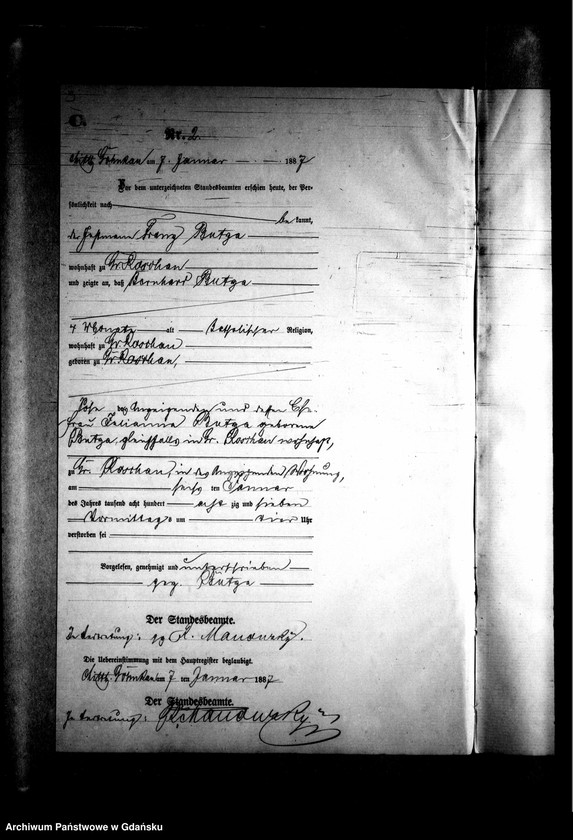 C.
Nr. 2.
am 7. Januar 1887
Vor dem unterzeichneten Standesbeamten erschien heute, der Per-
sönlichkeit nach
be kannt,
der Franz Butza
wohnhaft zu Gr. Roschau
und zeigte an, daß Bernhard Butza
4 Monate alt katholischer Religion,
wohnhaft zu Gr. Roschau
geboren zu Gr. Roschau,
Sohn des Anzeigenden und dessen Ehe-
frau Julianna Butza geborene
Butza, gleichfalls in Gr. Roschau wohnhaft,
zu Gr. Roschau, in des Anzeigenden Wohnung,
am sechs ten Januar
des Jahres tausend acht hundert acht zig und sieben
Vormittags um vier Uhr
verstorben sei
Vorgelesen, genehmigt und unterschrieben
gez. Butza
Der Standesbeamte.
In Vertretung: gz
Die Uebereinstimmung mit dem Hauptregister beglaubigt.
am 7 ten Januar 1887
Der Standesbeamte.
In Vertretung:
Archiwum Państwowe w Gdańsku